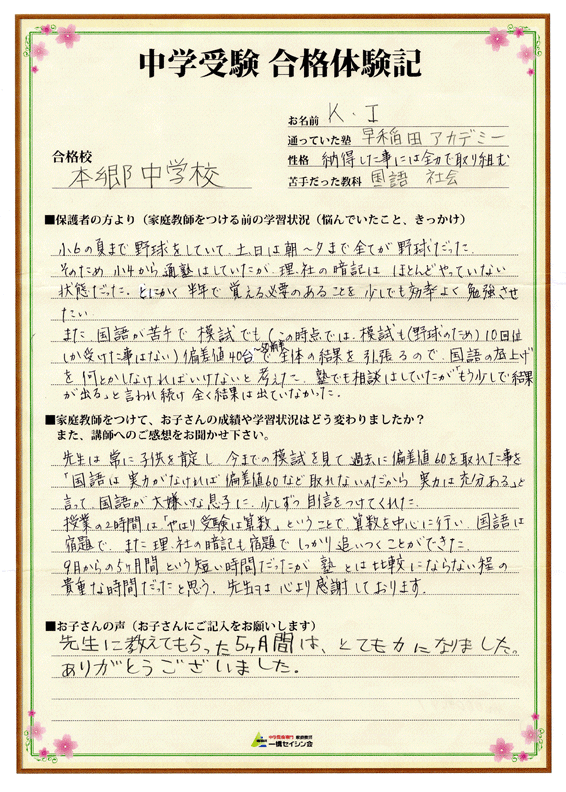 中学受験 合格体験記
お名前 K・I
通っていた塾 早稲田アカデミー
性格 納得した事には全力で取り組む
苦手だった教科 国語 社会
合格校
本郷中学校
■保護者の方より（家庭教師をつける前の学習状況（悩んでいたこと、きっかけ）
小6の夏まで野球をしていて、土、日は朝～夕まで全てが野球だった。
そのため小4から通塾はしていたが、理、社の暗記はほとんどやっていない
状態だった。とにかく半年で覚える必要のあることを少しでも効率よく勉強させ
たい。
また国語が苦手で模試でも（この時点では、模試も（野球のため）10回位
しか受けた事はない）偏差値40台～50前半で全体の結果を引張るので、国語の底上げ
を何とかしなければいけないと考えた。塾でも相談はしていたが「もう少しで結果
が出る」と言われ続け全く結果は出ていなかった。
■家庭教師をつけて、お子さんの成績や学習状況はどう変わりましたか？
また、講師へのご感想をお聞かせ下さい。
先生は常に子供を肯定し、今までの模試を見て過去に偏差値60を取れた事を
「国語は実力がなければ偏差値60など取れないのだから実力は充分ある」と
言って、国語が大嫌いな息子に、少しずつ自信をつけてくれた。
授業の2時間は「やはり受験は算数」ということで、算数を中心に行い、国語は
宿題で、また理、社の暗記も宿題でしっかり追いつくことができた。
9月からの5ヶ月間という短い時間だったが塾とは比較にならない程の
貴重な時間だったと思う。先生には心より感謝しております。
■お子さんの声（お子さんにご記入をお願いします）
先生に教えてもらった5ヶ月間は、とても力になりました。
ありがとうございました。
中学受験専門 家庭教師
一橋セイシン会